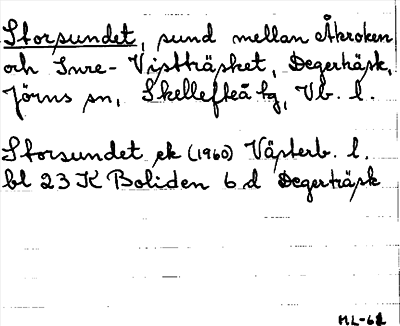 Storsundet, sund mellan Åkroken
och Inre-Vistträsket, Degerträsk,
Jörns sn, Skellefteå tg, Vb. l.
Storsundet ek (1960) Västerb. l.
bl 23 K Boliden 6 d Degerträsk
ML-62